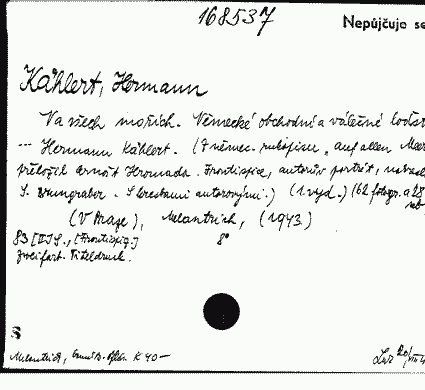 168537
Nepůjčuje se
Kählert, Hermann
Na všech mořích. Německé obchodní a válečné loďst
--- Hermann Kählert. (Z němec. rukopisu „Auf allen Meer
přeložil Arnošt Hromada. Frontispice, autorův portrét,
S. Brungraber. S kresbami autorovými.) (1. vyd.) (62 fotogr. a 28
(V Praze), Melantrich, (1943.)
83 [II] S., [Frontispiz.] 8°
zweifarb. Titeldruck.
S
Melantrich, K 40 —